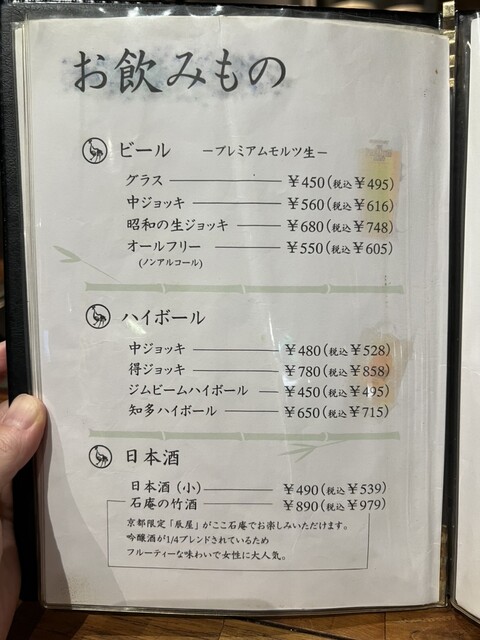 お飲みもの
ビール －プレミアムモルツ生－
グラス ￥450(税込￥495)
中ジョッキ ￥560(税込￥616)
昭和の生ジョッキ ￥680(税込￥748)
オールフリー ￥550(税込￥605)
(ノンアルコール)
ハイボール
中ジョッキ ￥480(税込￥528)
得ジョッキ ￥780(税込￥858)
ジムビームハイボール ￥450(税込￥495)
知多ハイボール ￥650(税込￥715)
日本酒
日本酒(小) ￥490(税込￥539)
石庵の竹酒 ￥890(税込￥979)
京都限定「辰屋」がここ石庵でお楽しみいただけます。
吟醸酒が1/4ブレンドされているため
フルーティーな味わいで女性に大人気。